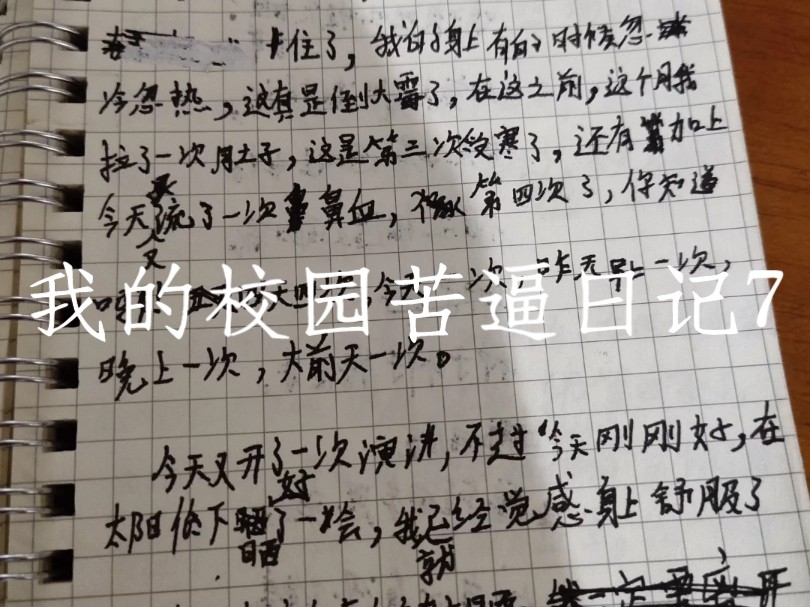 卡住了，我的身上有的时候忽
冷忽热，这真是倒大霉了，在这之前，这个月我
拉了一次肚子，这是第三次受寒了，还有加上
今天又流了一次鼻血，第四次了，你知道
我的校园苦逼日记7
晚上一次，大前天一次。
今天又开了一次演讲，不过今天刚刚好，在
太阳底下晒了好一会，我已经就觉感身上舒服了